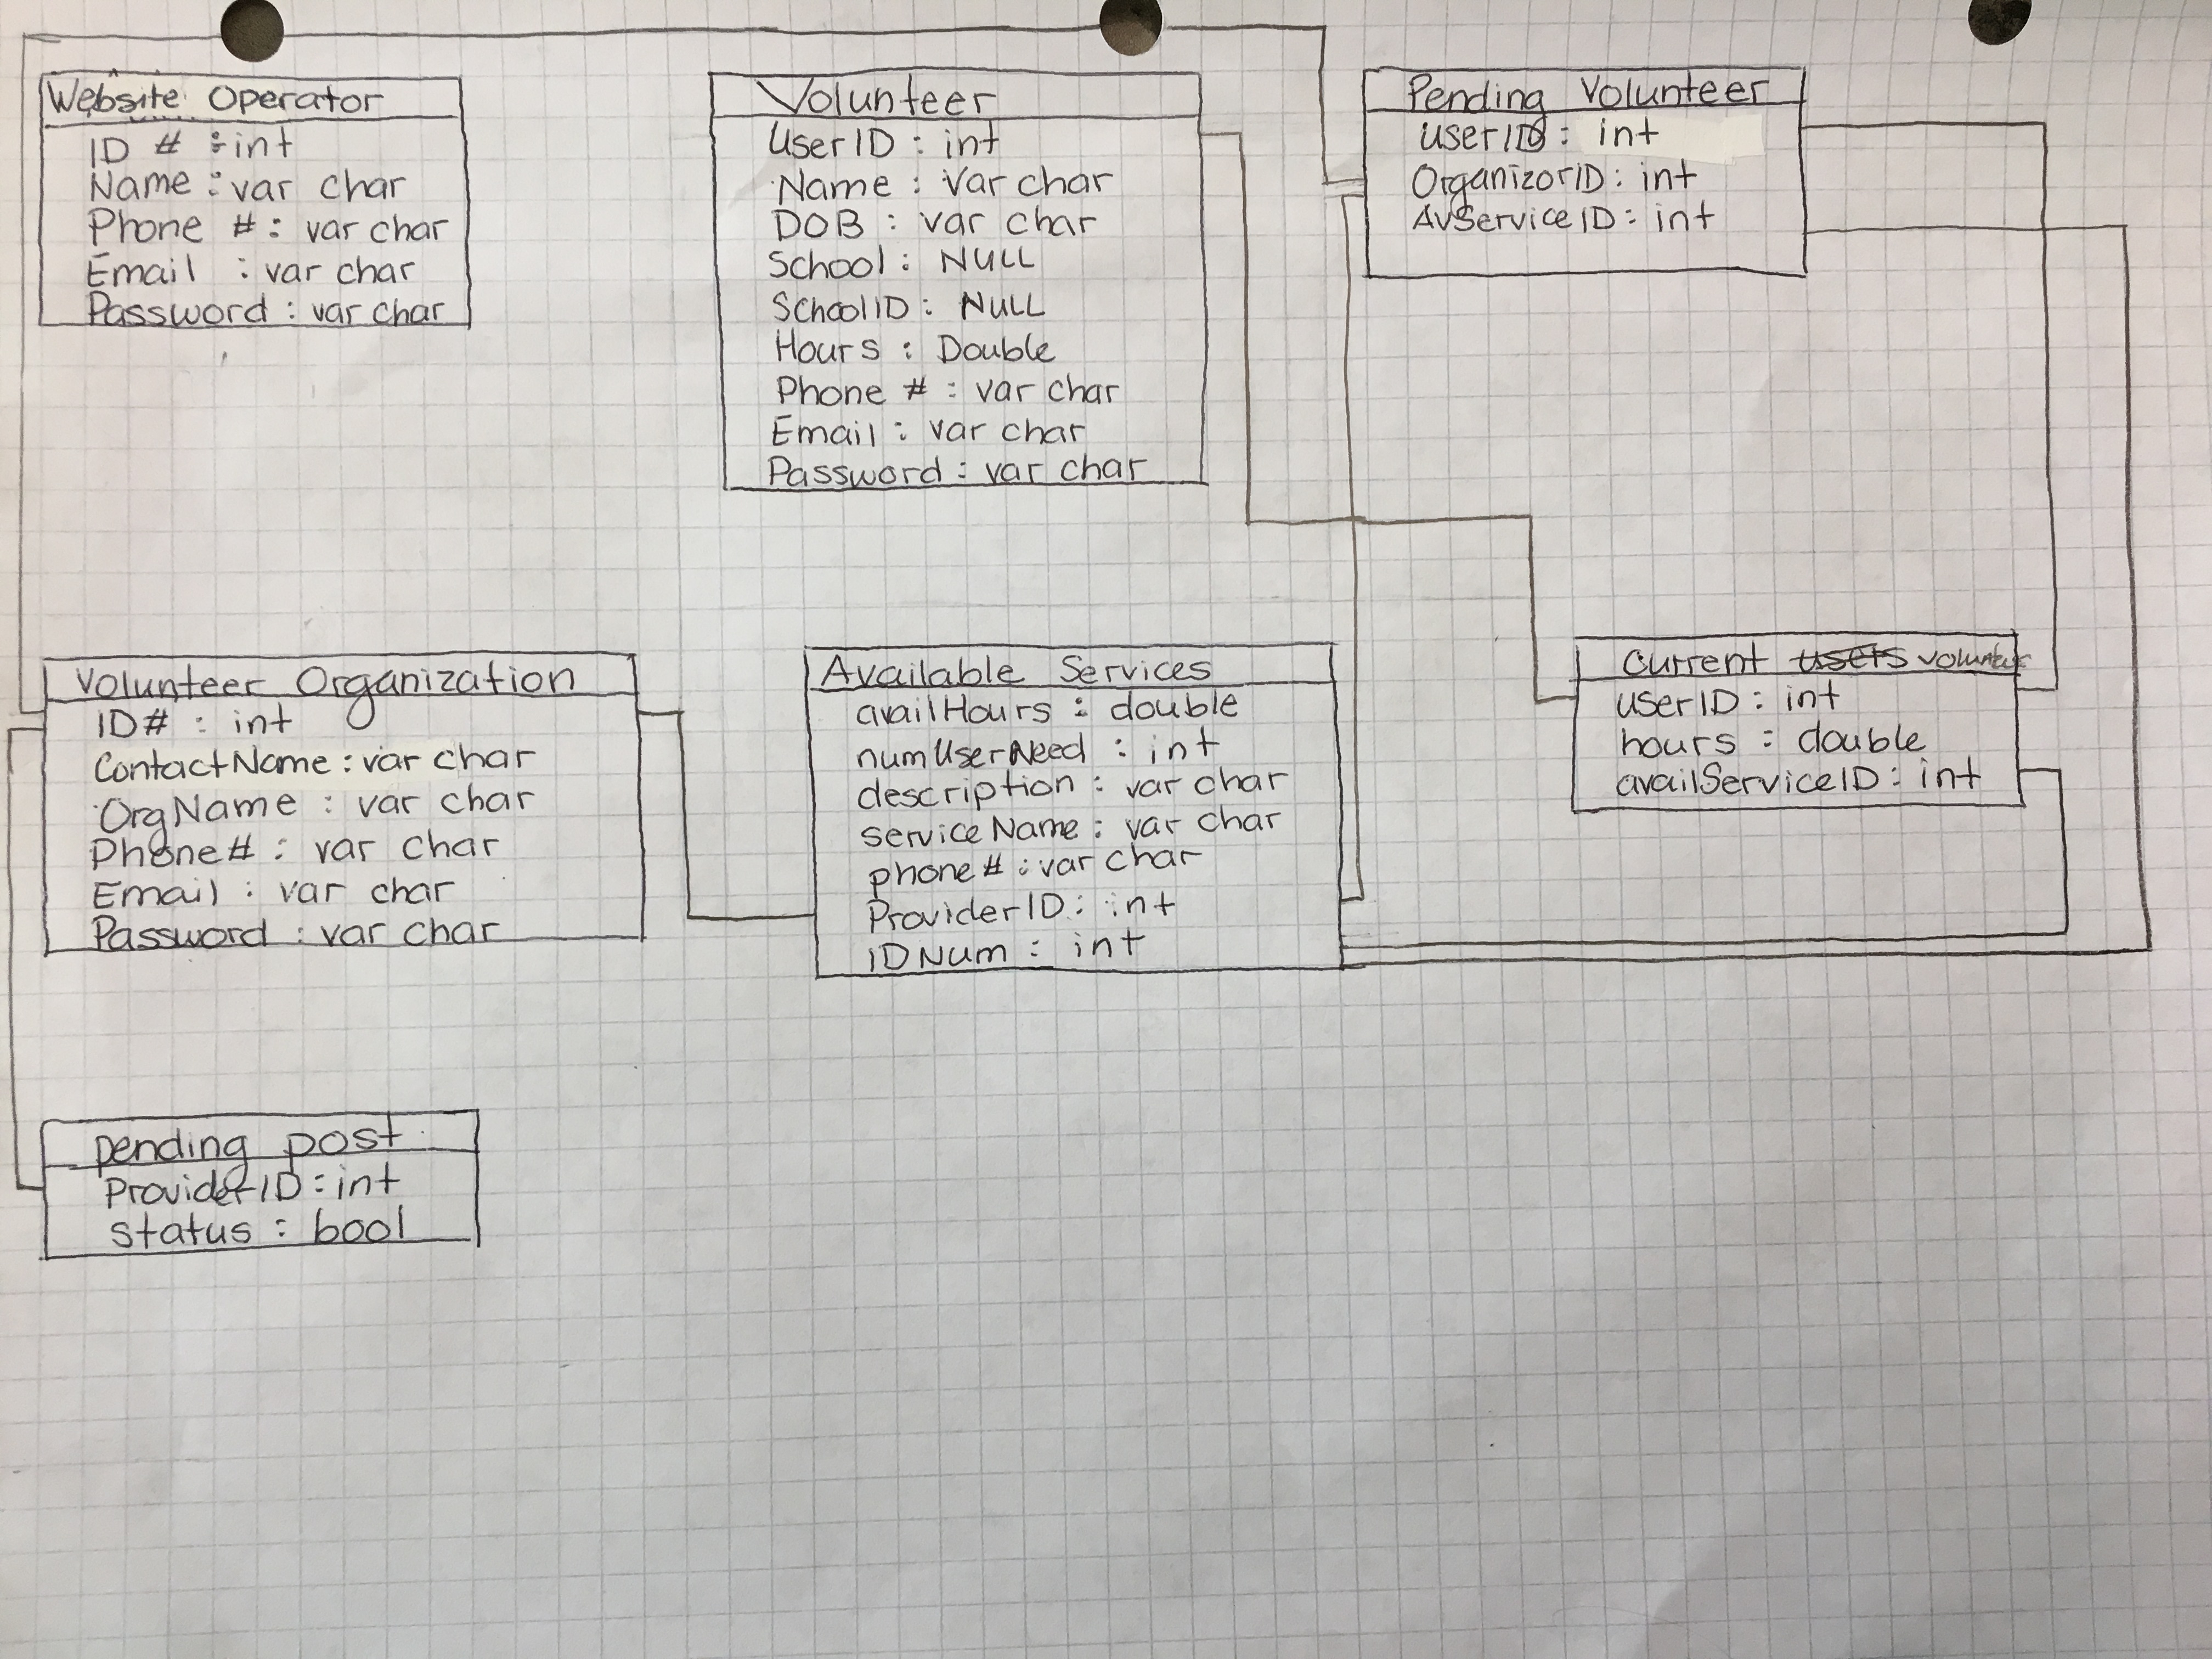 Website Operator
ID # : int
Name : var char
Phone # : var char
Email : var char
Password : var char
Volunteer
UserID : int
Name : Var char
DOB : var char
School : NULL
SchoolID : NULL
Hours : Double
Phone # : var char
Email : var char
Password : var char
Pending Volunteer
userID : int
OrganizorID : int
AvServiceID : int
Volunteer Organization
ID# : int
ContactName : var char
OrgName : var char
Phone# : var char
Email : var char
Password : var char
Available Services
availHours : double
numUserNeed : int
description : var char
serviceName : var char
phone# : var char
ProviderID : int
IDNum : int
Current users
userID : int
hours : double
availServiceID : int
pending post
ProviderID : int
status : bool